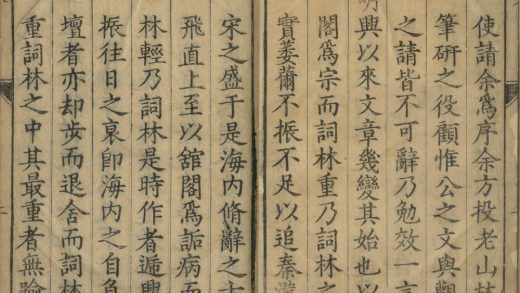 使請余爲序余方投老山林
筆研之役顧惟公之文與觀
之請皆不可辭乃勉效一言
明興以來文章幾變其始也以
閣爲宗而詞林重乃詞林之
實萎薾不振不足以追秦漢
宋之盛于是海內脩辭之士
飛直上至以舘閣爲詬病而
林輕乃詞林是時作者遞興
振往日之衰卽海內之自負
壇者亦却步而退舍而詞林
重詞林之中其最重者無踰